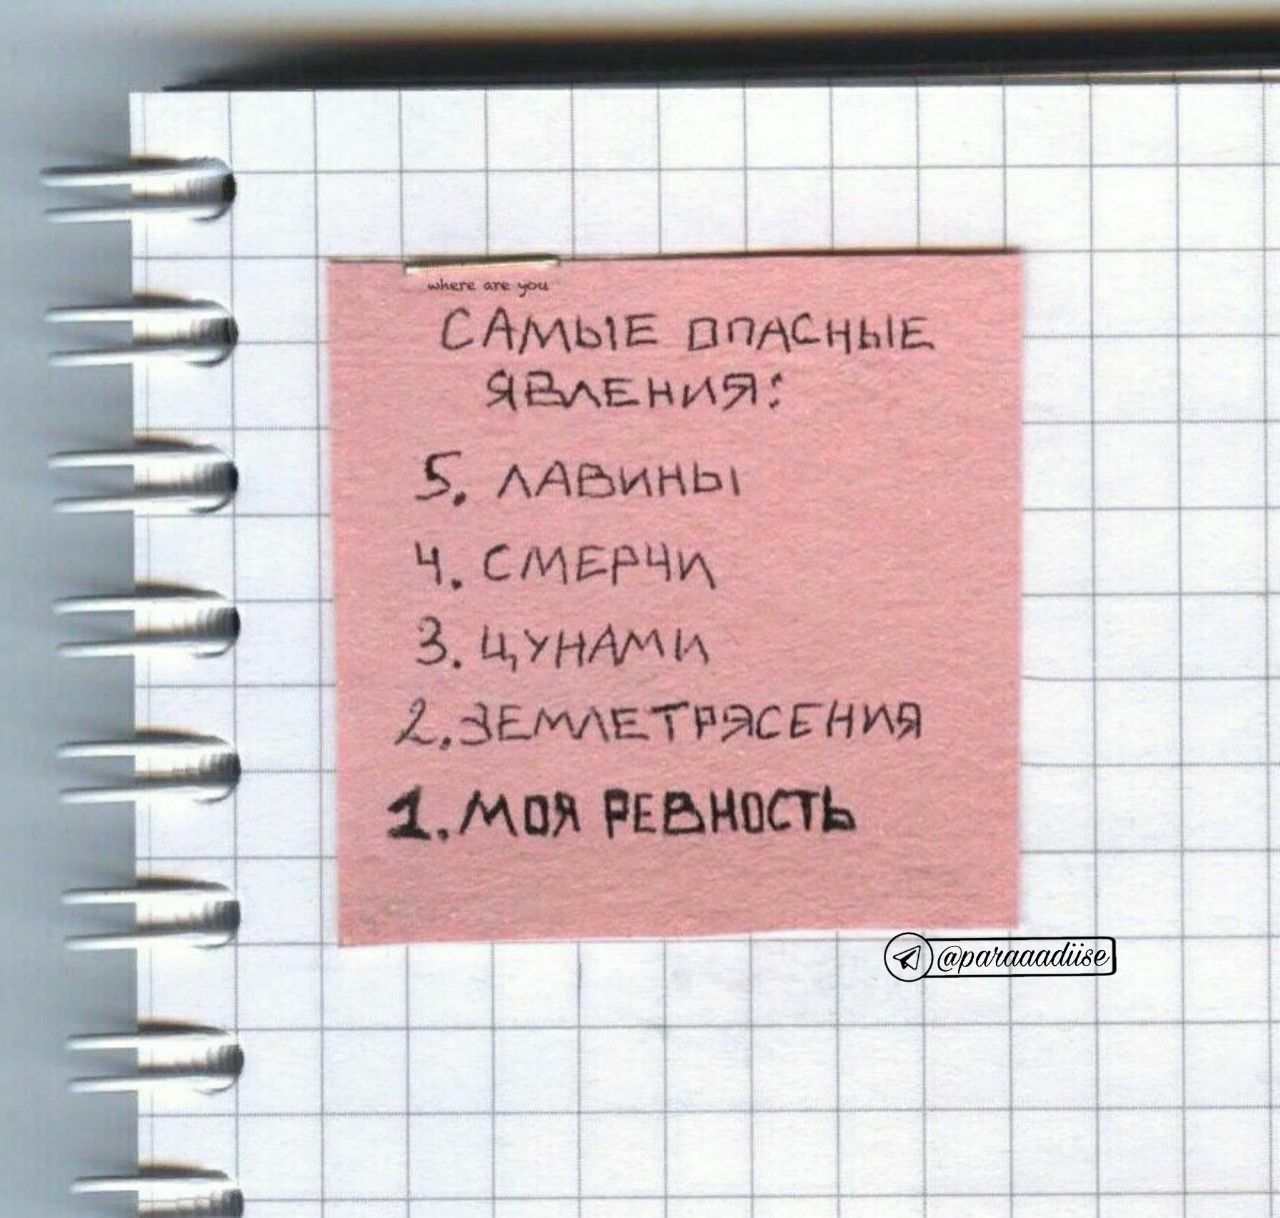 where are you
САМЫЕ ОПАСНЫЕ
ЯВЛЕНИЯ:
5. ЛАВИНЫ
4. СМЕРЧИ
3. ЦУНАМИ
2. ЗЕМЛЕТРЯСЕНИЯ
1. МОЯ РЕВНОСТЬ
@paraaadiise